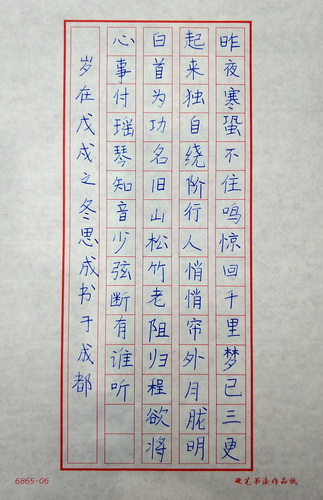 昨夜寒蛩不住鸣惊回千里梦已三更
起来独自绕阶行人悄悄帘外月胧明
白首为功名旧山松竹老阻归程欲将
心事付瑶琴知音少弦断有谁听
岁在戊戌之冬思成书于成都
6865-06
硬笔书法作品纸